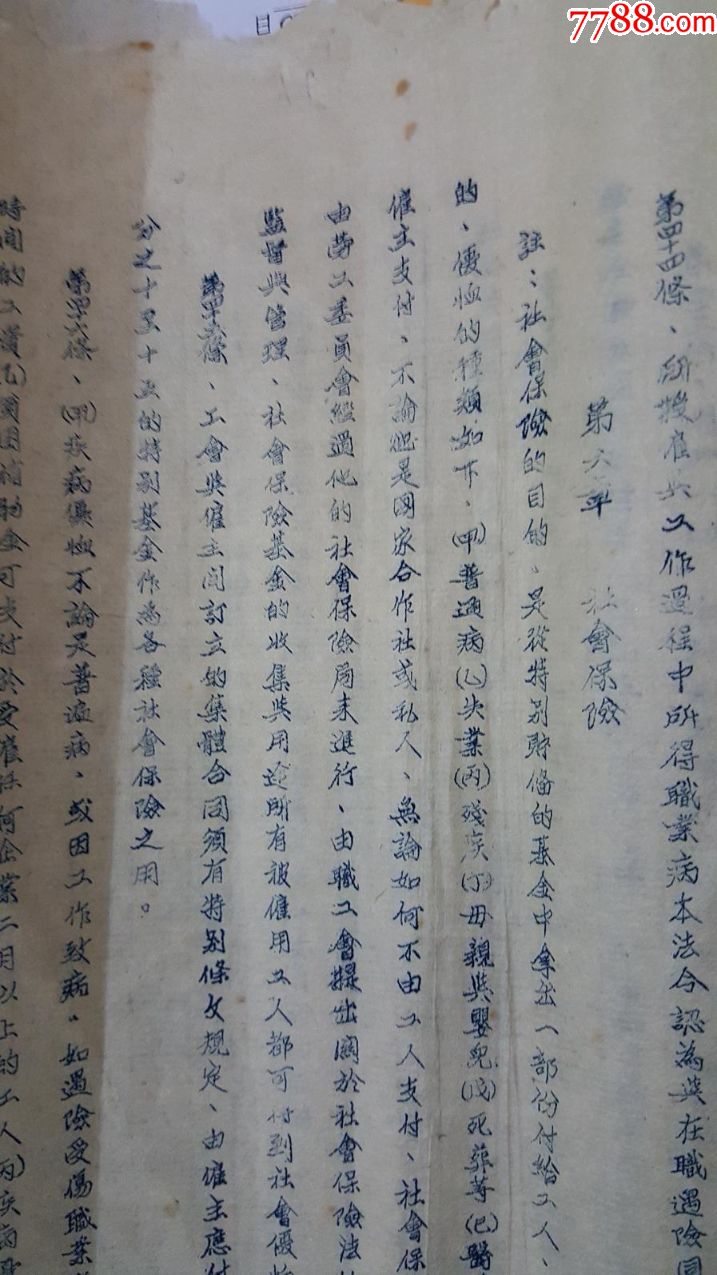 7788.com
中国收藏热线
目
第四十四條、所授雇與工作過程中所得職業病本法令認為與在職遇險同
第六章 社會保險
註：社會保險的目的、是從特别貯備的基金中拿出一部份付給工人、
的、優恤的種類如下、(甲)普通病(乙)失業(丙)殘疾(丁)母親與嬰兒(戊)死葬等(己)醫
僱主支付、不論他是國家合作社或私人、無論如何不由工人支付、社會保
由勞工委員會經過他的社會保險局来進行、由職工會提出關於社會保險法
監督與管理、社會保險基金的收集與用途所有被僱用工人都可得到社會優恤
第四十五條、工會與僱主间訂立的集體合同須有特别條文規定、由僱主應付
分之十至十五的特别基金作為各種社會保險之用。
第四十六條、(甲)疾病優恤不論是普通病、或因工作致病、如遇險受傷職業
時间的工資(乙)貧困補助金可支付於受雇任何企業二月以上的工人(丙)疾病